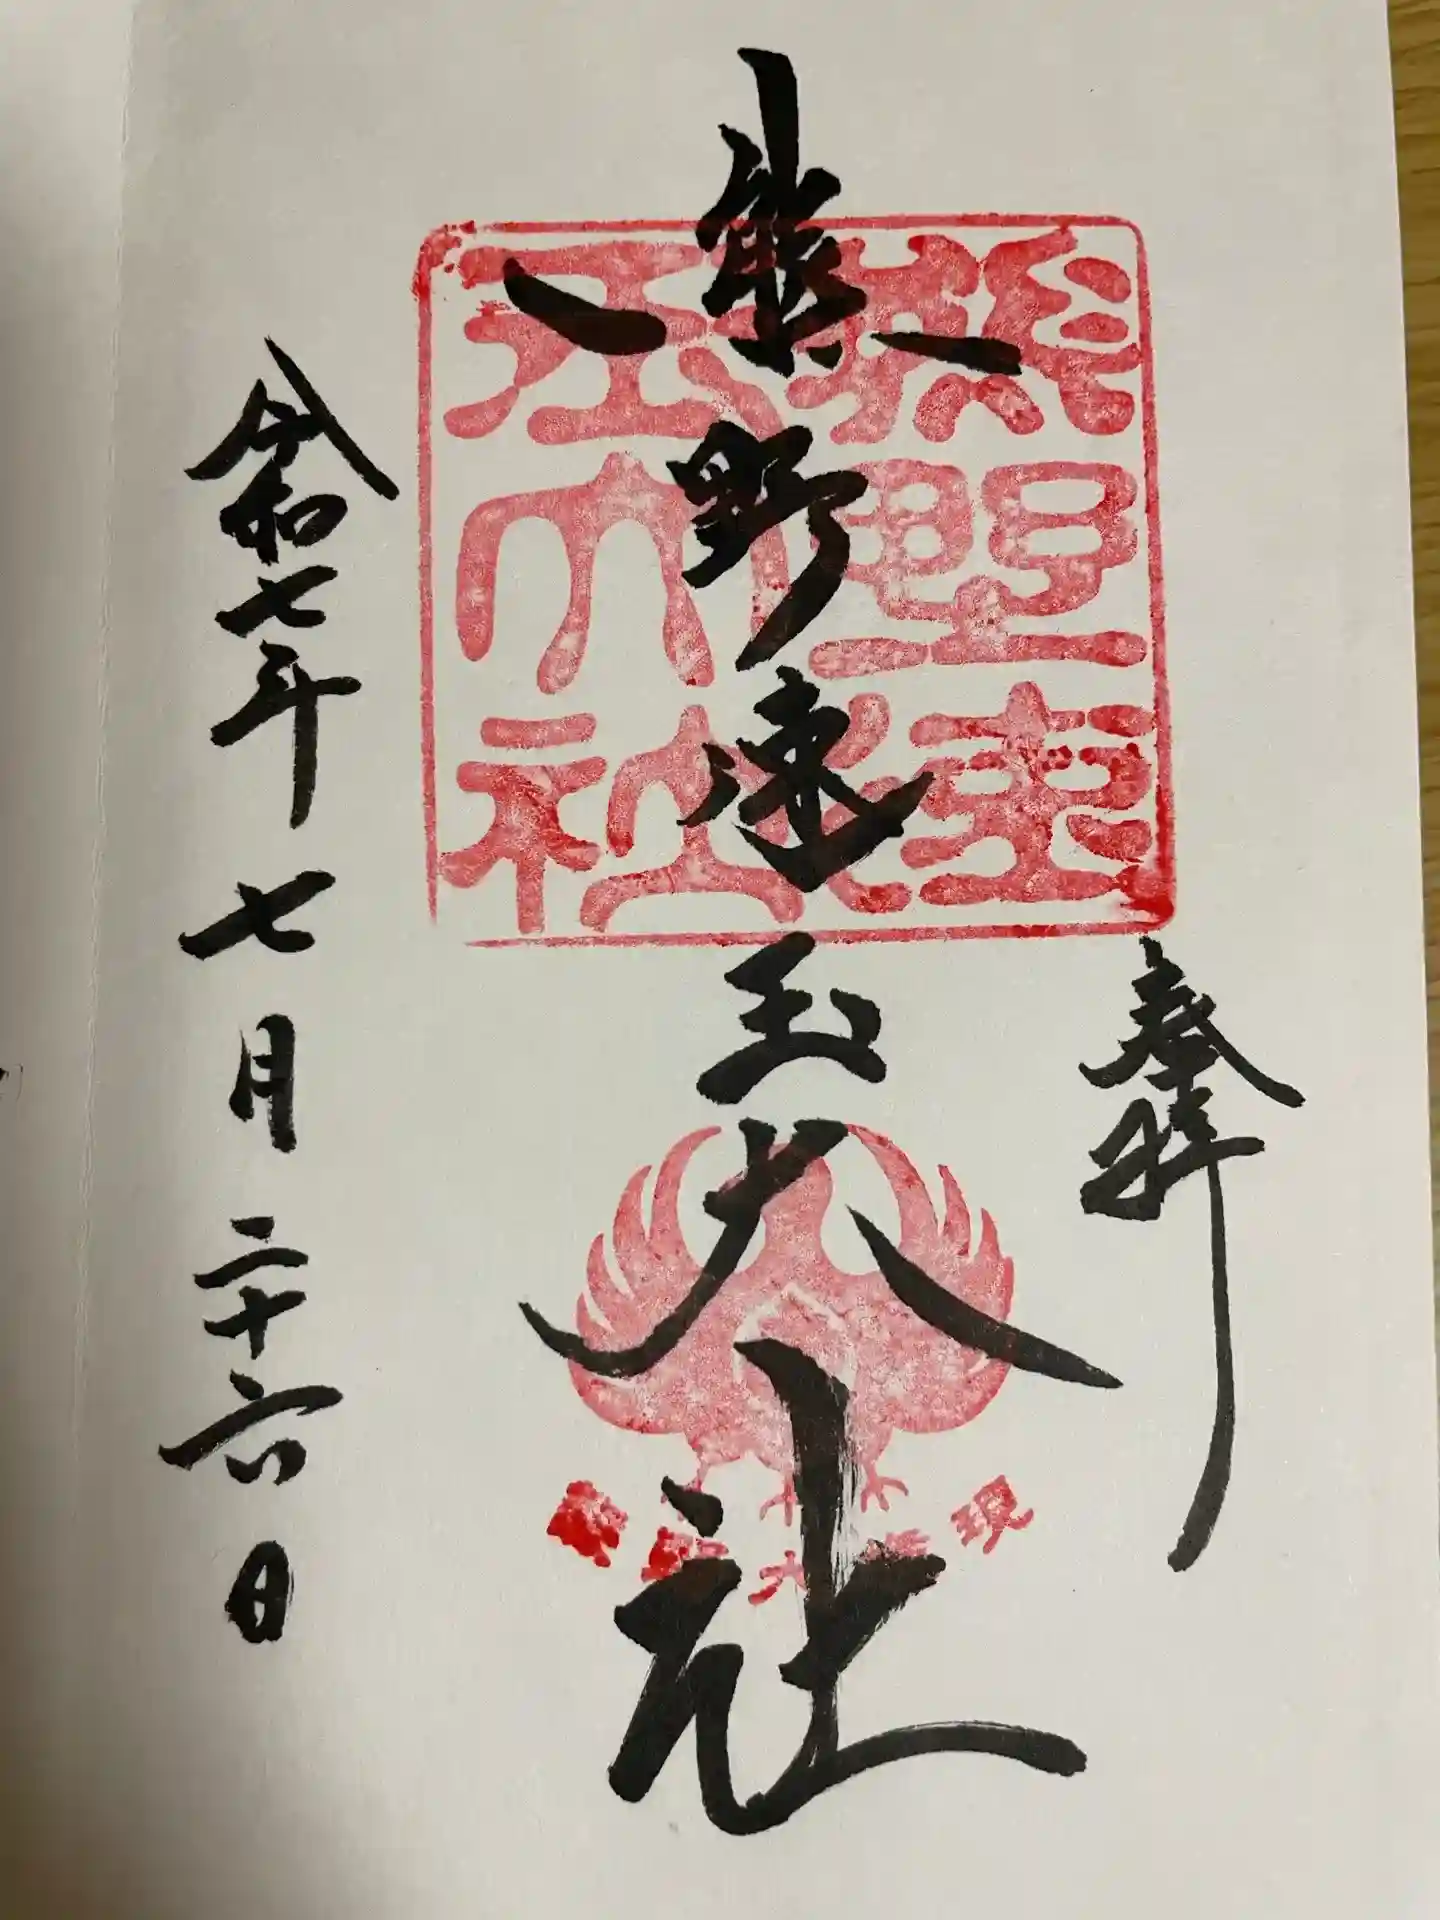 奉拝
熊野速玉大社
熊野速
玉大社
熊野大権現
令和七年七月二十六日